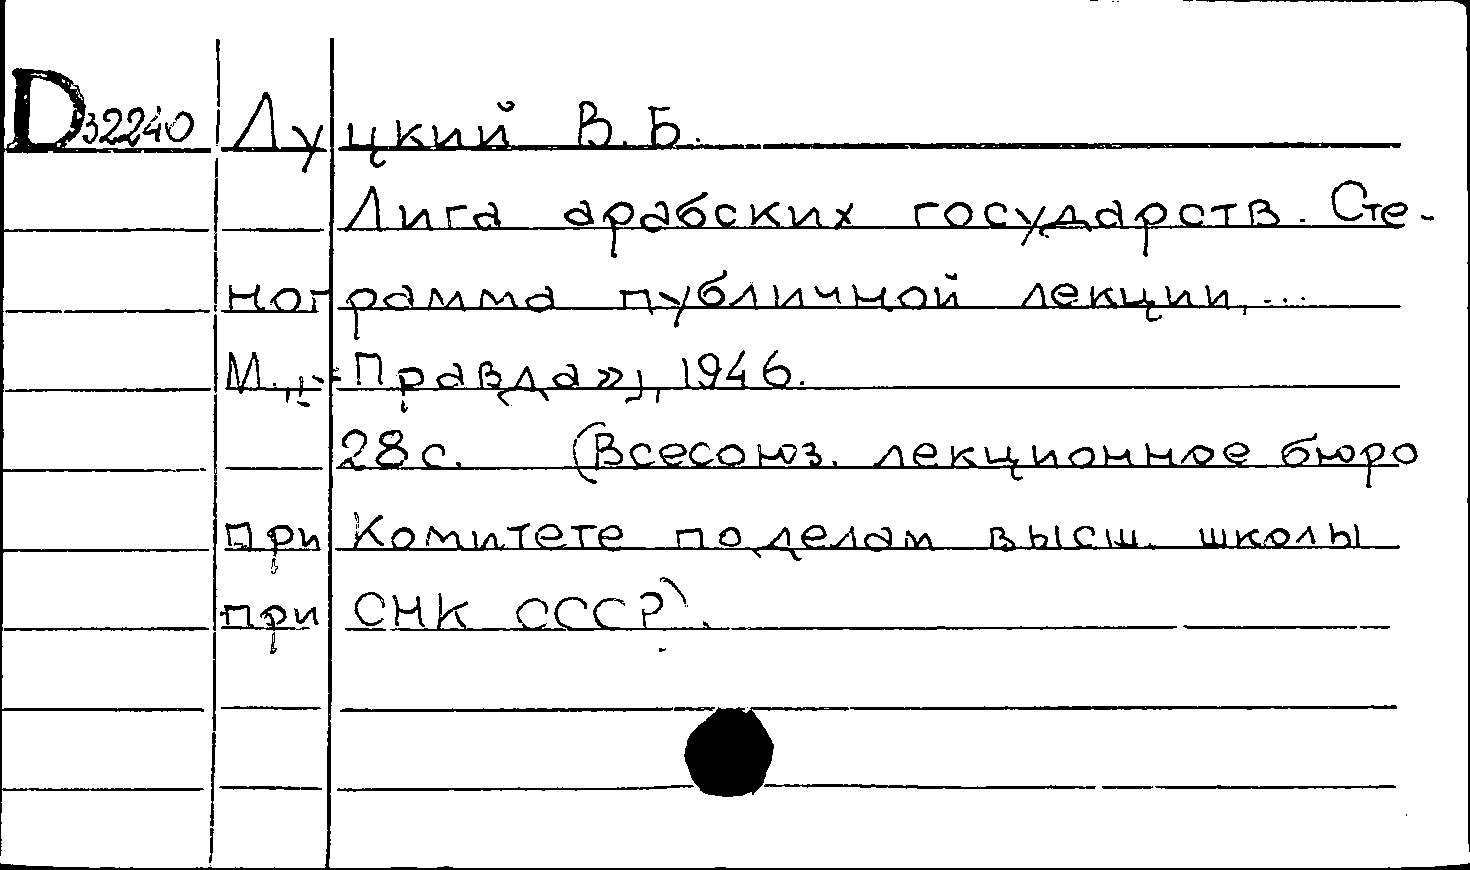 D32240 Луцкий В.Б.
Лига арабских государств. Сте-
нограмма публичной лекции, ...
М., «Правда», 1946.
28 с. (Всесоюз. лекционное бюро
при Комитете по делам высш. школы
при СНК СССР).